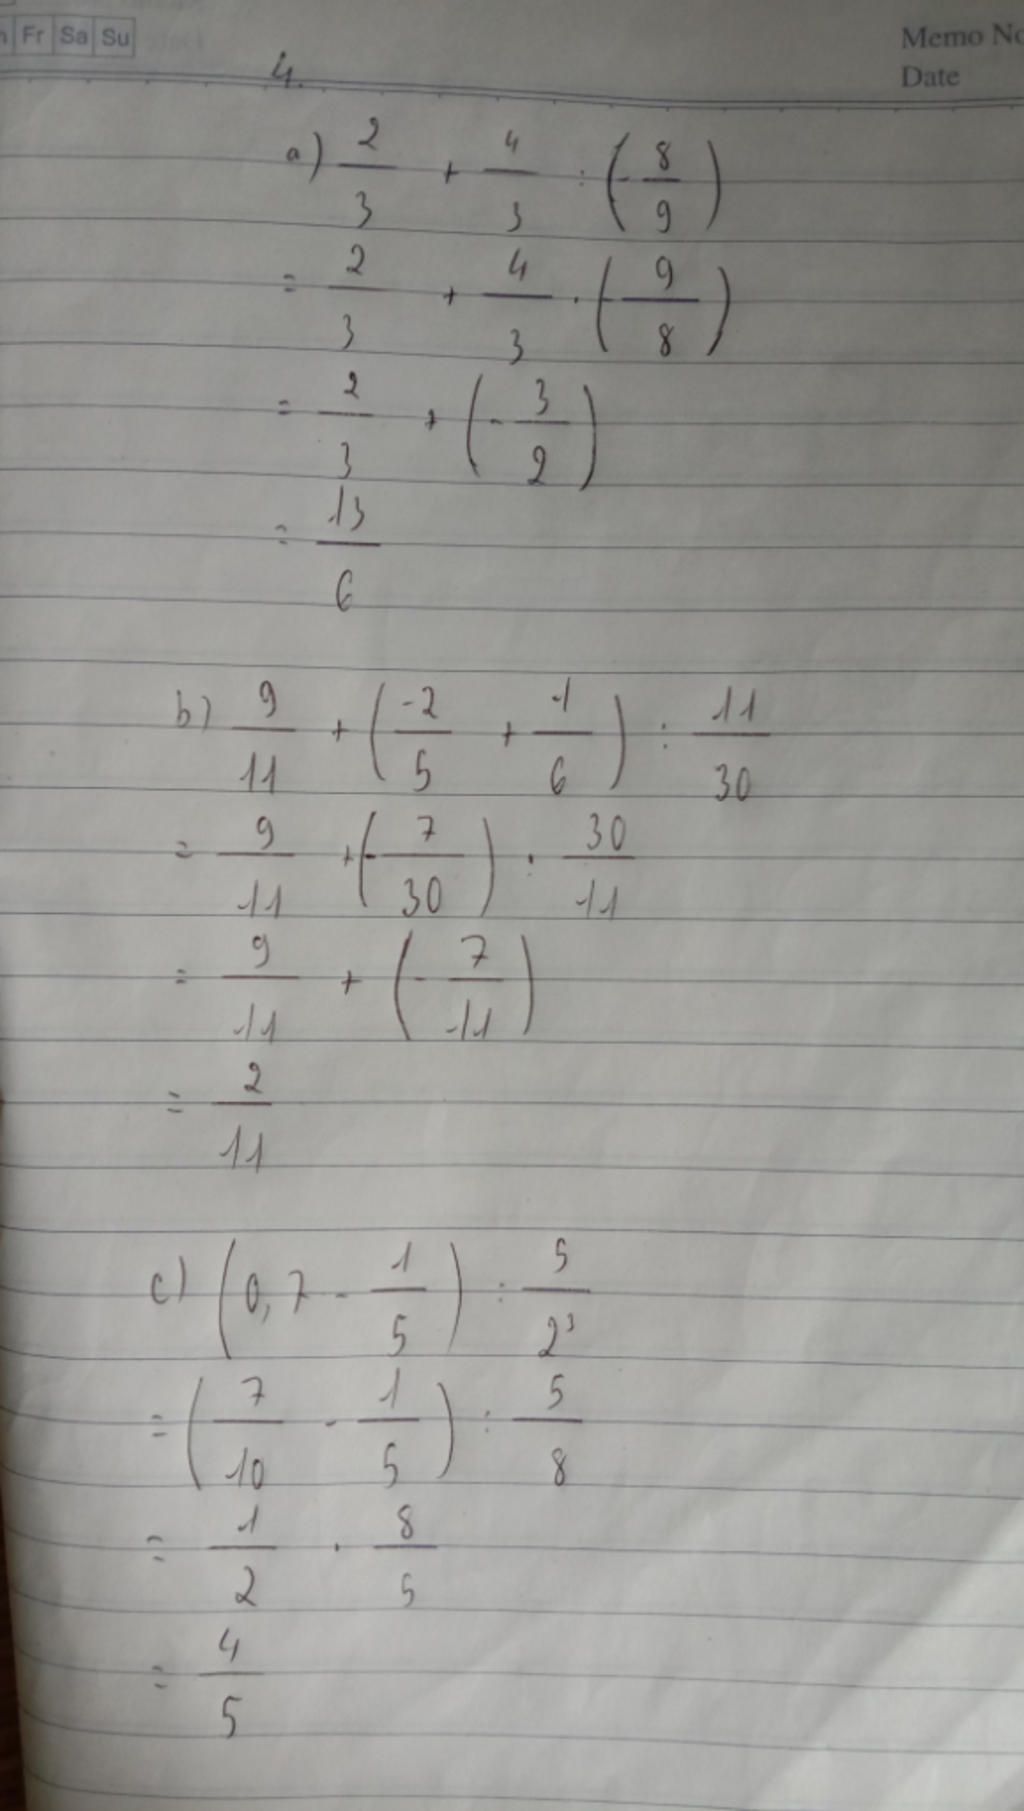 n Fr Sa Su
Memo No
Date
4.
a) 2/3 + 4/3 : (-8/9)
= 2/3 + 4/3 . (-9/8)
= 2/3 + (-3/2)
= 13/6
b) 9/11 + (-2/5 + 1/6) : 11/30
= 9/11 + (-7/30) . 30/11
= 9/11 + (-7/11)
= 2/11
c) (0,7 - 1/5) : 5/2³
= (7/10 - 1/5) : 5/8
= 1/2 . 8/5
= 4/5